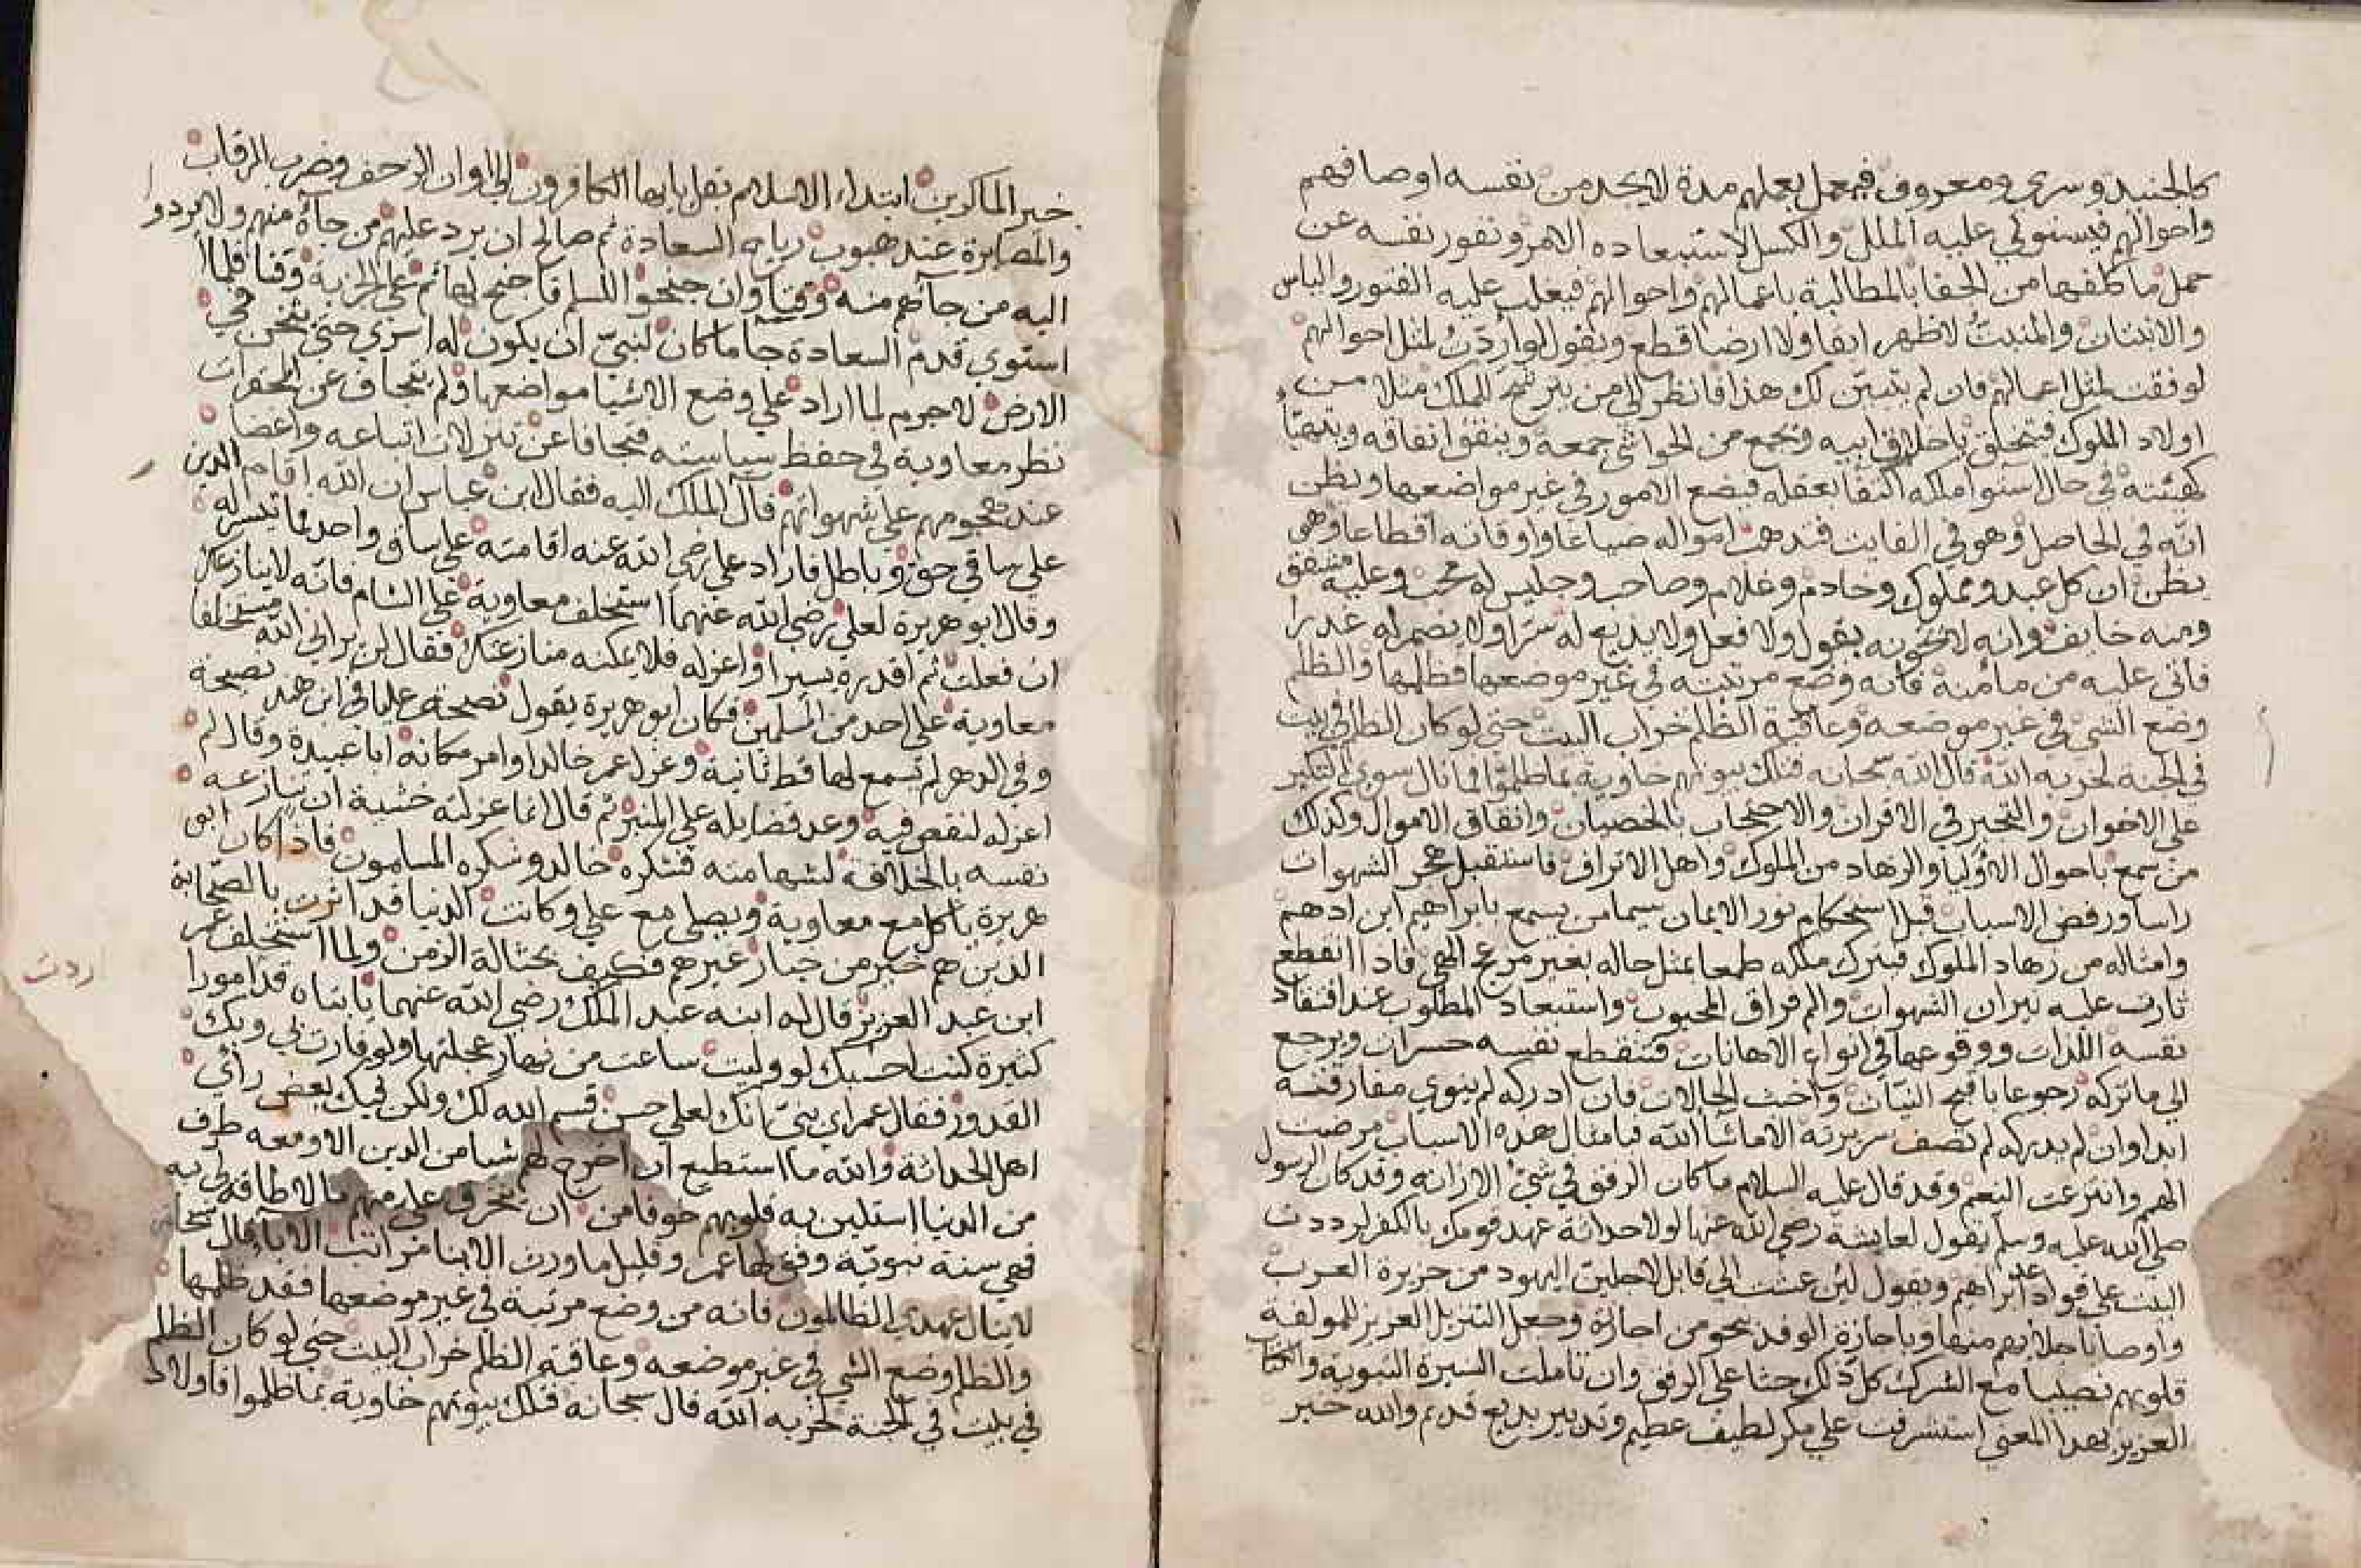 كالجنيد وسري ومعروف فيعمل بعملهم مدة لا يجد من نفسه اوصافهم
واحوالهم فيستولي عليه الملل والكسل لاستبعاده الامر ونفور نفسه عن
حمل ما كلفها من الجفا بالمطالبة باعمالهم واحوالهم فيغلب عليه الفتور والياس
والانبتات والمنبت لا ظهر ابقا ولا ارضا قطع ويقول لو اردت لمثل احوالهم
لوفقت لمثل اعمالهم فان لم يتبين لك هذا فانظر الى من يترشح للملك مثلا من
اولاد الملوك فيتخلق باخلاق ابيه ويجمع من الحواشي جمعه وينفق انفاقه ويتهيا
كهيئته في حال استوا ملكه اكتفا بعقله فيضع الامور في غير مواضعها ويظن
انه في الحاصل وهو في الفايت فتذهب امواله ضياعا واوقاته اقطاعا وهو
يظن ان كل عبد ومملوك وخادم وغلام وصاحب وجليس له محب وعليه مشفق
ومنه خايف وانه لا يخونه بقول ولا فعل ولا يذيع له سرا ولا يضمر له غدرا
فاتي عليه من مامنه فانه وضع مرتبته في غير موضعها فظلمها والظلم
وضع الشي في غير موضعه وعاقبة الظلم خراب البيت حتى لو كان الظلم في بيت
في الجنة لخربه الله قال الله سبحانه فتلك بيوتهم خاوية بما ظلموا فما نال سوى التكبر
على الاخوان والتجبر في الاقران والاحتجاب بالخصيان وانفاق الاموال وكذلك
من سمع باحوال الاوليا والزهاد من الملوك واهل الاتراف فاستقبل هجر الشهوات
راسا ورفض الاسباب قبل استحكام نور الايمان سيما من يسمع بابراهيم ابن ادهم
وامثاله من زهاد الملوك فيترك ملكه طمعا بمثل حاله بغير مزعج الهي فاذا انقطع
ثارت عليه نيران الشهوات والم فراق المحبوب واستبعاد المطلوب عند افتقاد
نفسه اللذات ووقوعها في انواع الاهانات فتتقطع نفسه حسرات ويرجع
الى ما تركه رجوعا باقبح النيات واخث الحالات فان ادركه لم ينوي مفارقته
ابدا وان لم يدركه لم تصف سريرته الا ما شا الله فبامثال هذه الاسباب مرضت
الهمم وانتزعت النعم وقد قال عليه السلام ما كان الرفق في شي الا زانه وقد كان الرسول
صلى الله عليه وسلم يقول لعايشة رضي الله عنها لولا حداثة عهد قومك بالكفر لرددت
البيت على قواعد ابراهيم ويقول لئن عشت الى قابل لاجلين اليهود من جزيرة العرب
واوصانا باجلايهم منها وباجازة الوفد بنحو من اجازته وجعل التنزيل العزيز للمولفة
قلوبهم نصيبا مع الشرك كل ذلك حثا على الرفق وان تاملت السيرة النبوية والكتاب
العزيز بهذا المعنى استشرفت على مكر لطيف عظيم وتدبير بديع قديم والله خير
خير الماكرين ابتداء الاسلام بقل يايها الكافرون الى اوان الزحف وضرب الرقاب
والمصابرة عند هبوب رياح السعادة ثم صالح ان يرد عليهم من جاه منهم ولا يردوا
اليه من جاهم منه وقتا وان جنحوا للسلم فاجنح لها ثم على الجزية وقتا فلما
استوى قدم السعادة جا ما كان لنبي ان يكون له اسرى حتى يثخن في
الارض لا جرم لما اراد علي وضع الاشيا مواضعها ولم يتجاف عن المحقرات
نظر معاوية في حفظ سياسته فتجافا عن تنزلات اتباعه واغضا
عند هجومهم على شهواتهم فال الملك اليه فقال ابن عباس ان الله اقام الدين
على ساقي حق وباطل فاراد علي رضي الله عنه اقامته على ساق واحد فما تيسر له
وقال ابو هريرة لعلي رضي الله عنهما استخلف معاوية على الشام فانه لا ينازعك
ان فعلت ثم اقدره يسيرا واعزله فلا يمكنه منازعتك فقال لن يراني الله مستخلفا
معاوية على احد من المسلمين فكان ابو هريرة يقول نصحت عليا في ابن هند نصيحة
وفي الدهر لم تسمع لها قط ثانية وعزل عمر خالدا وامر مكانه ابا عبيدة وقال لم
اعزله لنقص فيه وعد فضايله على المنبر ثم قال انما عزلته خشية ان تنازعه
نفسه بالخلافة لشهامته فشكره خالد وشكره المسلمون فاذا كان ابو
هريرة ياكل مع معاوية ويصلي مع علي وكانت الدنيا قد اثرت بالصحابة
الذين هم خير من خيار غيرهم فكيف بحثالة الزمن ولما استخلف عمر
ابن عبد العزيز قال له ابنه عبد الملك رضي الله عنهما يا ابتاه قد امورا
كثيرة كنت احسبك لو وليت ساعت من نهار عجلتها ولو فارت لي وبك
القدور فقال عمر اي بني انك لعلى حسن قسم الله لك ولكن فيك بعض راي
اهل الحداثة والله ما استطيع ان اخرج لهم شيا من الدين الا ومعه طرف
من الدنيا استلين به قلوبهم خوفا من ان ينخرق علي منهم ما لا طاقة لي به
فهي سنة نبوية وفق لها عمر وقليل ما ورث الابنا مراتب الابا قال سبحانه
لا ينال عهدي الظالمون فانه من وضع مرتبة في غير موضعها فقد ظلمها
والظلم وضع الشي في غير موضعه وعاقبة الظلم خراب البيت حتى لو كان الظلم
في بيت في الجنة لخربه الله قال سبحانه فتلك بيوتهم خاوية بما ظلموا فاولاد